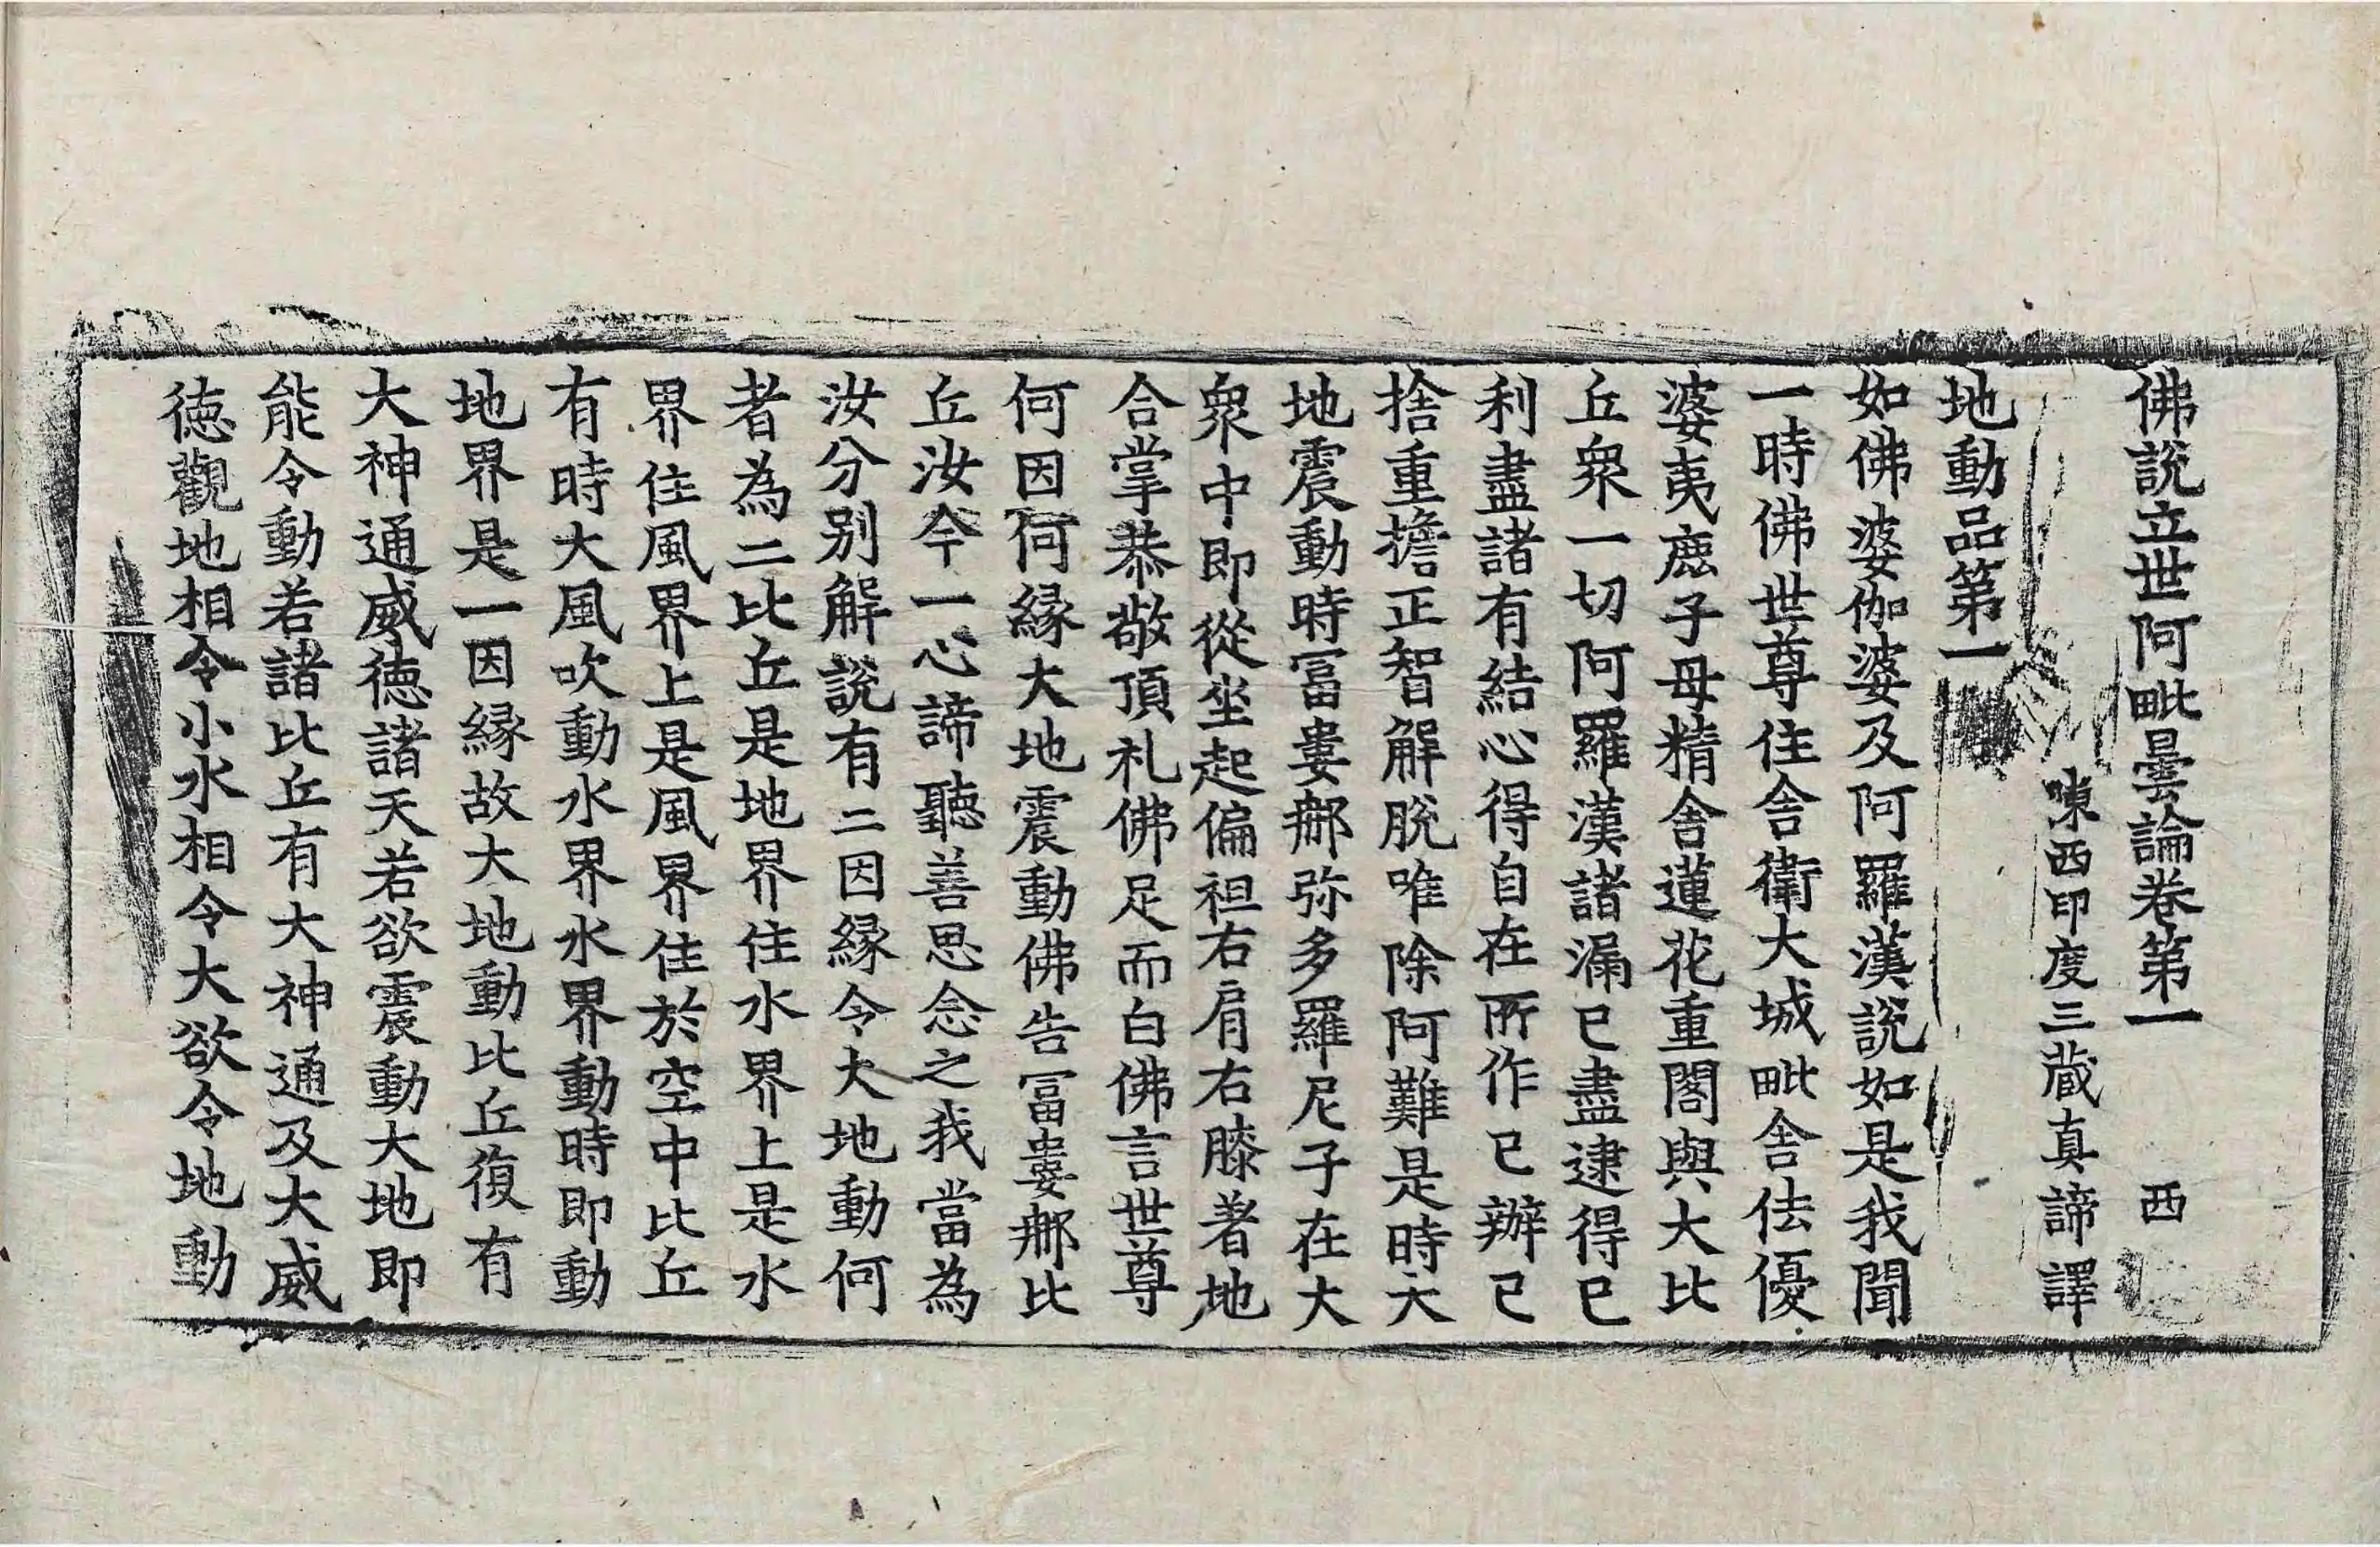 佛說立世阿毗曇論卷第一 西
陳西印度三藏真諦譯
地動品第一
如佛婆伽婆及阿羅漢說如是我聞
一時佛世尊住舍衛大城毗舍佉優
婆夷鹿子母精舍蓮花重閣與大比
丘衆一切阿羅漢諸漏已盡逮得已
利盡諸有結心得自在所作已辦已
捨重擔正智解脫唯除阿難是時大
地震動時冨婁𨚗弥多羅尼子在大
衆中即從坐起偏袒右肩右膝著地
合掌恭敬頂礼佛足而白佛言世尊
何因何緣大地震動佛告冨婁𨚗比
丘汝今一心諦聽善思念之我當為
汝分別解說有二因緣令大地動何
者為二比丘是地界住水界上是水
界住風界上是風界住於空中比丘
有時大風吹動水界水界動時即動
地界是一因緣故大地動比丘復有
大神通威徳諸天若欲震動大地即
能令動若諸比丘有大神通及大威
徳觀地相令小水相令大欲令地動